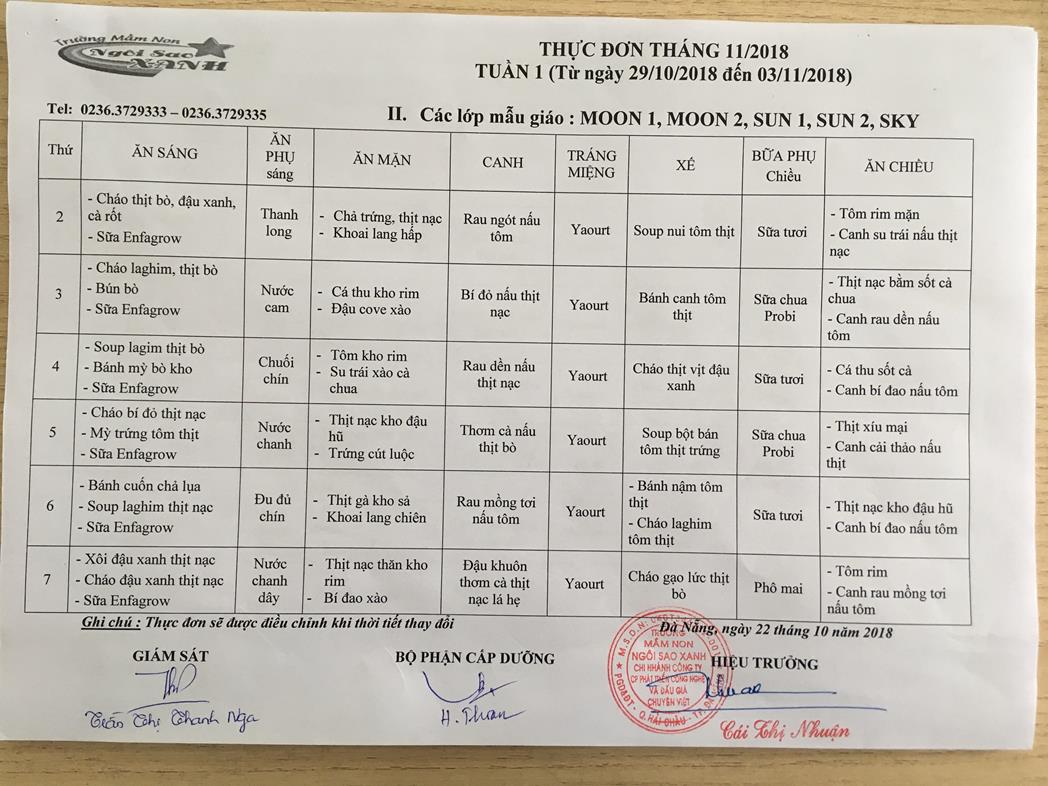 Trường Mầm Non
Ngôi Sao
XANH
THỰC ĐƠN THÁNG 11/2018
TUẦN 1 (Từ ngày 29/10/2018 đến 03/11/2018)
Tel: 0236.3729333 – 0236.3729335
II. Các lớp mẫu giáo : MOON 1, MOON 2, SUN 1, SUN 2, SKY
Thứ
ĂN SÁNG
ĂN
PHỤ
sáng
ĂN MẶN
CANH
TRÁNG
MIỆNG
XÉ
BỮA PHỤ
Chiều
ĂN CHIỀU
2
- Cháo thịt bò, đậu xanh,
cà rốt
- Sữa Enfagrow
Thanh
long
- Chả trứng, thịt nạc
- Khoai lang hấp
Rau ngót nấu
tôm
Yaourt
Soup nui tôm thịt
Sữa tươi
- Tôm rim mặn
- Canh su trái nấu thịt
nạc
3
- Cháo laghim, thịt bò
- Bún bò
- Sữa Enfagrow
Nước
cam
- Cá thu kho rim
- Đậu cove xào
Bí đỏ nấu thịt
nạc
Yaourt
Bánh canh tôm
thịt
Sữa chua
Probi
- Thịt nạc bằm sốt cà
chua
- Canh rau dền nấu
tôm
4
- Soup lagim thịt bò
- Bánh mỳ bò kho
- Sữa Enfagrow
Chuối
chín
- Tôm kho rim
- Su trái xào cà
chua
Rau dền nấu
thịt nạc
Yaourt
Cháo thịt vịt đậu
xanh
Sữa tươi
- Cá thu sốt cà
- Canh bí đao nấu tôm
5
- Cháo bí đỏ thịt nạc
- Mỳ trứng tôm thịt
- Sữa Enfagrow
Nước
chanh
- Thịt nạc kho đậu
hũ
- Trứng cút luộc
Thơm cà nấu
thịt bò
Yaourt
Soup bột bán
tôm thịt trứng
Sữa chua
Probi
- Thịt xíu mại
- Canh cải thảo nấu
thịt
6
- Bánh cuốn chả lụa
- Soup laghim thịt nạc
- Sữa Enfagrow
Đu đủ
chín
- Thịt gà kho sả
- Khoai lang chiên
Rau mồng tơi
nấu tôm
Yaourt
- Bánh nậm tôm
thịt
- Cháo laghim
tôm thịt
Sữa tươi
- Thịt nạc kho đậu hũ
- Canh bí đao nấu tôm
7
- Xôi đậu xanh thịt nạc
- Cháo đậu xanh thịt nạc
- Sữa Enfagrow
Nước
chanh
dây
- Thịt nạc thăn kho
rim
- Bí đao xào
Đậu khuôn
thơm cà thịt
nạc lá hẹ
Yaourt
Cháo gạo lức thịt
bò
Phô mai
- Tôm rim
- Canh rau mồng tơi
nấu tôm
Ghi chú : Thực đơn sẽ được điều chỉnh khi thời tiết thay đổi
Đà Nẵng, ngày 22 tháng 10 năm 2018
GIÁM SÁT
BỘ PHẬN CẤP DƯỠNG
HIỆU TRƯỞNG
TRƯỜNG
MẦM NON
NGÔI SAO XANH
CHI NHÁNH CÔNG TY
CP PHÁT TRIỂN CÔNG NGHỆ
VÀ ĐẤU GIÁ
CHUYÊN VIỆT
Q. HẢI CHÂU
Trần Thị Thanh Nga
H. Phan
Cái Thị Nhuận